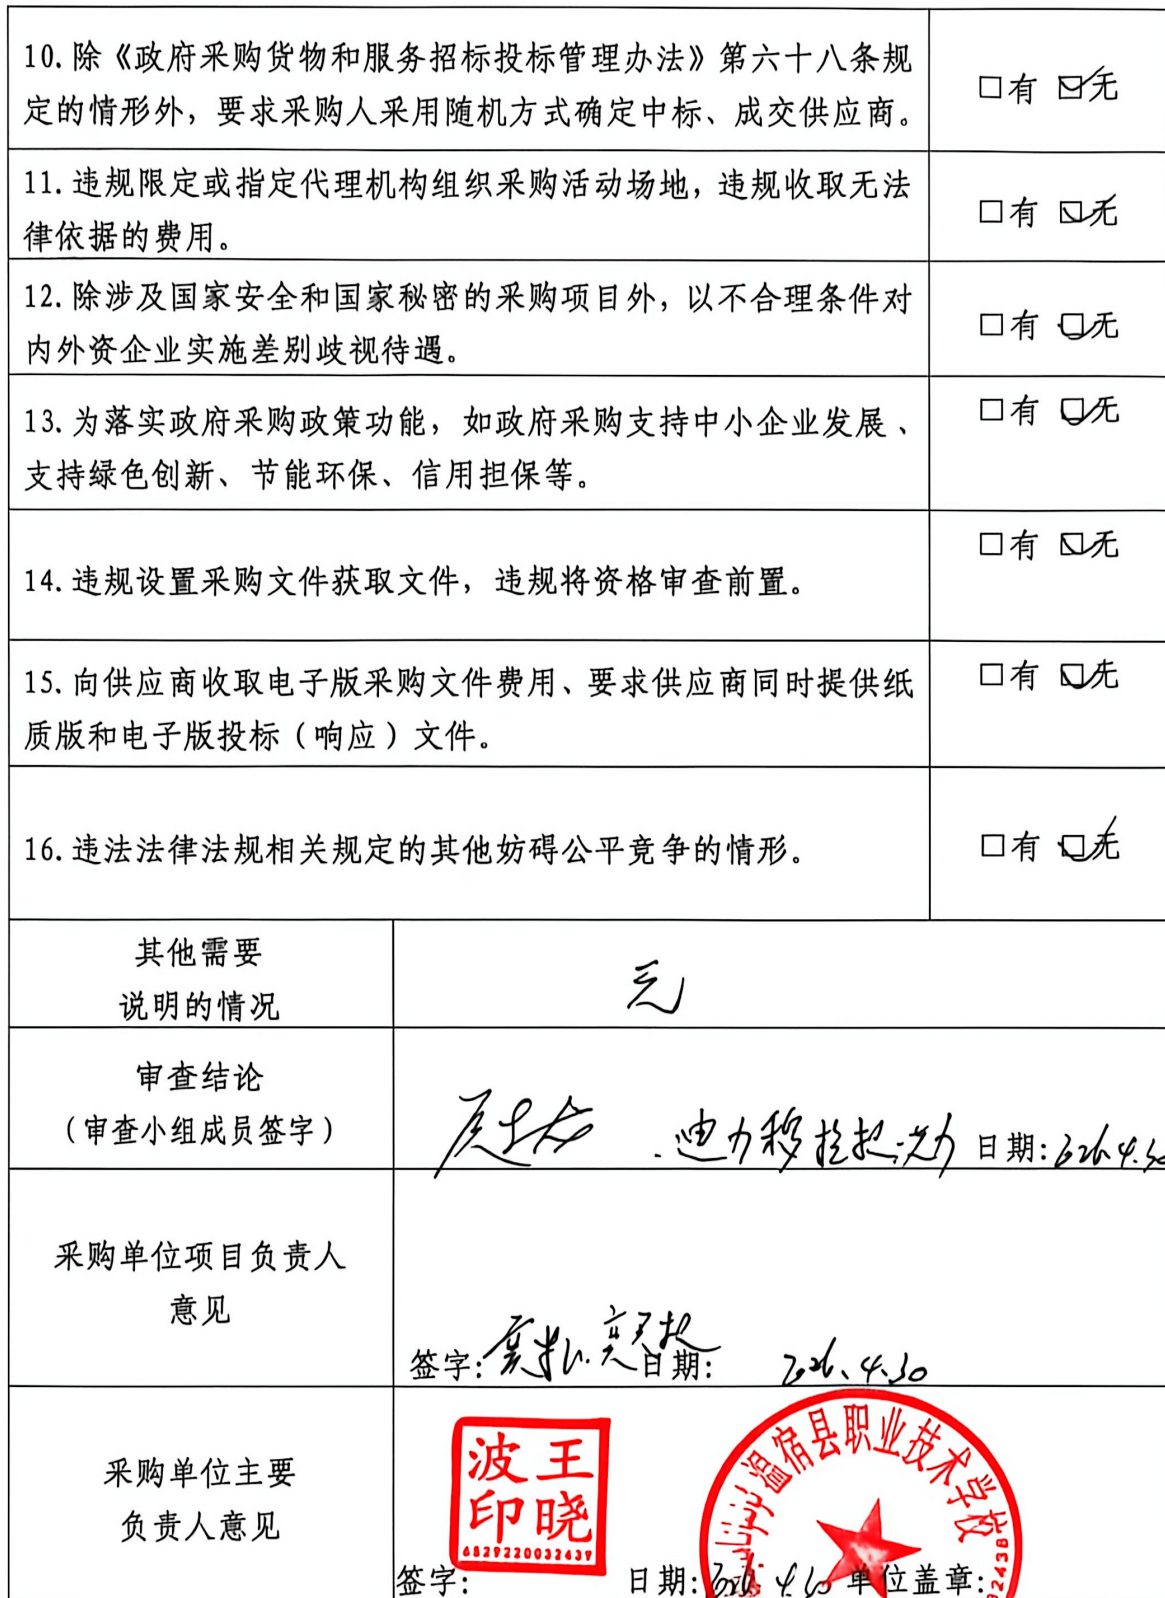 10.除《政府采购货物和服务招标投标管理办法》第六十八条规
定的情形外，要求采购人采用随机方式确定中标、成交供应商。
□有 ☑无
11.违规限定或指定代理机构组织采购活动场地，违规收取无法
律依据的费用。
□有 ☑无
12.除涉及国家安全和国家秘密的采购项目外，以不合理条件对
内外资企业实施差别歧视待遇。
□有 ☑无
13.为落实政府采购政策功能，如政府采购支持中小企业发展、
支持绿色创新、节能环保、信用担保等。
□有 ☑无
14.违规设置采购文件获取文件，违规将资格审查前置。
□有 ☑无
15.向供应商收取电子版采购文件费用、要求供应商同时提供纸
质版和电子版投标（响应）文件。
□有 ☑无
16.违法法律法规相关规定的其他妨碍公平竞争的情形。
□有 ☑无
其他需要
说明的情况
无
审查结论
（审查小组成员签字）
迪力穆拉提 日期:2026.4.30
采购单位项目负责人
意见
签字: 日期: 2026.4.30
采购单位主要
负责人意见
王晓波印
6829220032439
签字: 日期:2026.4.30 单位盖章:
温宿县职业技术学校